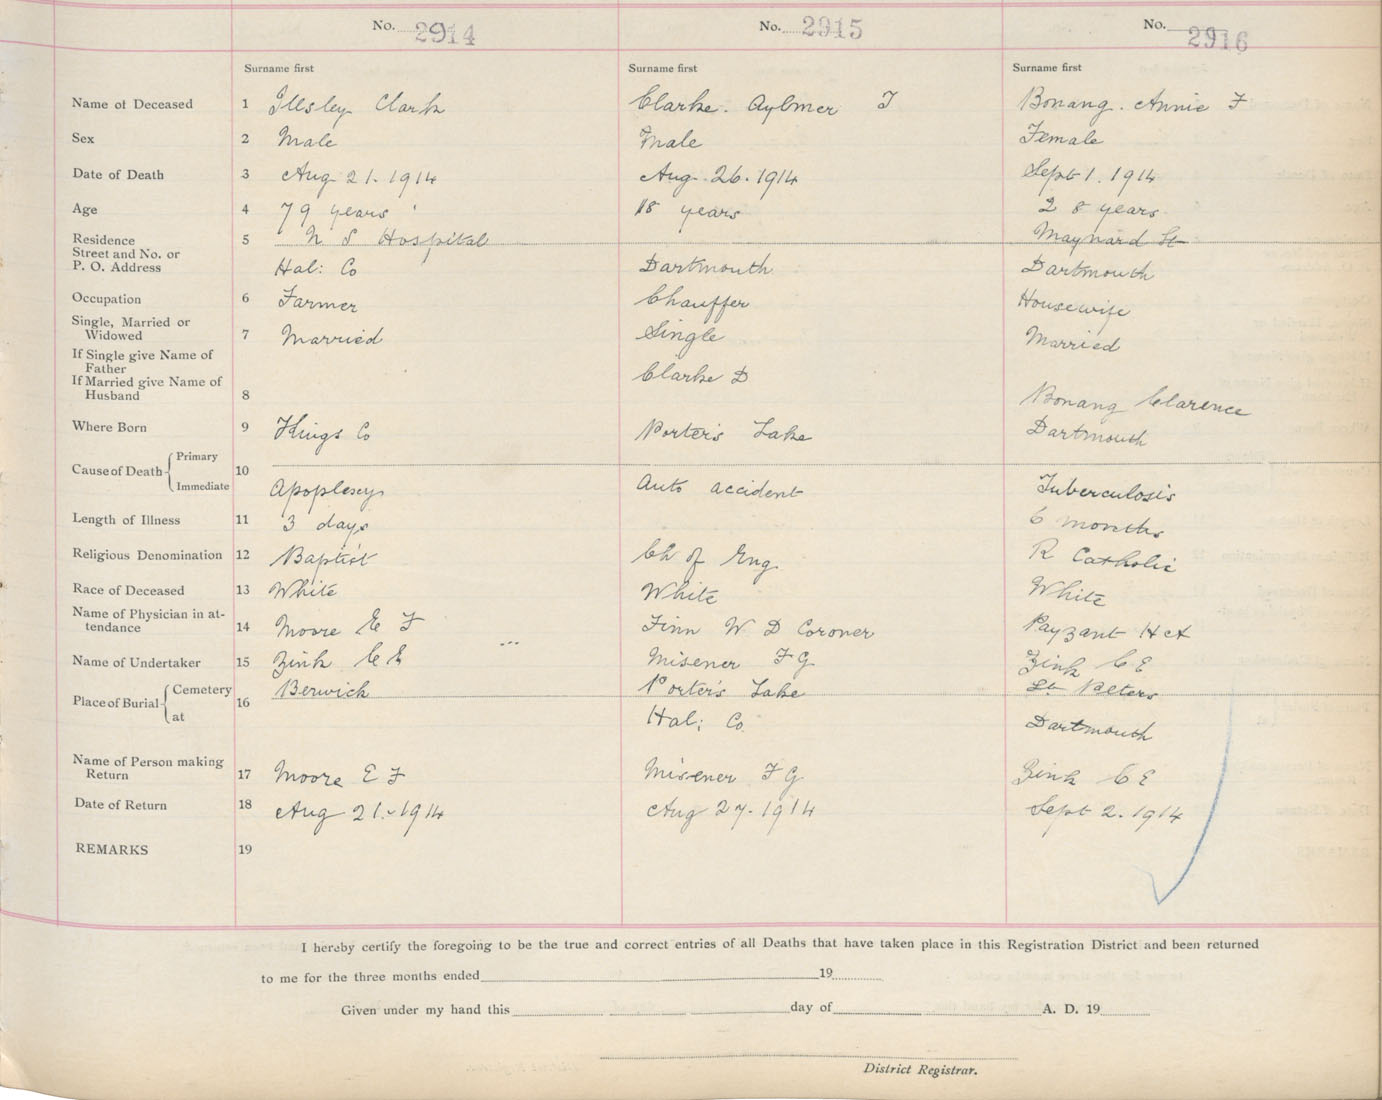 No. 2914 No. 2915 No. 2916
Surname first Surname first Surname first
Name of Deceased 1 Illsley Clark Clarke. Aylmer T Bonang. Annie F
Sex 2 Male Male Female
Date of Death 3 Aug 21. 1914 Aug. 26. 1914 Sept 1. 1914
Age 4 79 years 18 years 28 years
Residence 5 N S Hospital Maynard St
Street and No. or
P. O. Address Hal: Co Dartmouth Dartmouth
Occupation 6 Farmer Chauffer Housewife
Single, Married or
Widowed 7 Married Single Married
If Single give Name of
Father Clarke D
If Married give Name of
Husband 8 Bonang Clarence
Where Born 9 Kings Co Porter's Lake Dartmouth
Cause of Death Primary 10
Immediate Apoplexy Auto accident Tuberculosis
Length of Illness 11 3 days 6 months
Religious Denomination 12 Baptist Ch of Eng R Catholic
Race of Deceased 13 White White White
Name of Physician in at-
tendance 14 Moore E F Finn W D Coroner Payzant H A
Name of Undertaker 15 Zink C E Misener F G Zink C E
Place of Burial Cemetery 16 Berwick Porter's Lake St Peters
at Hal: Co. Dartmouth
Name of Person making
Return 17 Moore E F Misener F G Zink C E
Date of Return 18 Aug 21. 1914 Aug 27. 1914 Sept 2. 1914
REMARKS 19
I hereby certify the foregoing to be the true and correct entries of all Deaths that have taken place in this Registration District and been returned
to me for the three months ended 19
Given under my hand this day of A. D. 19
District Registrar.